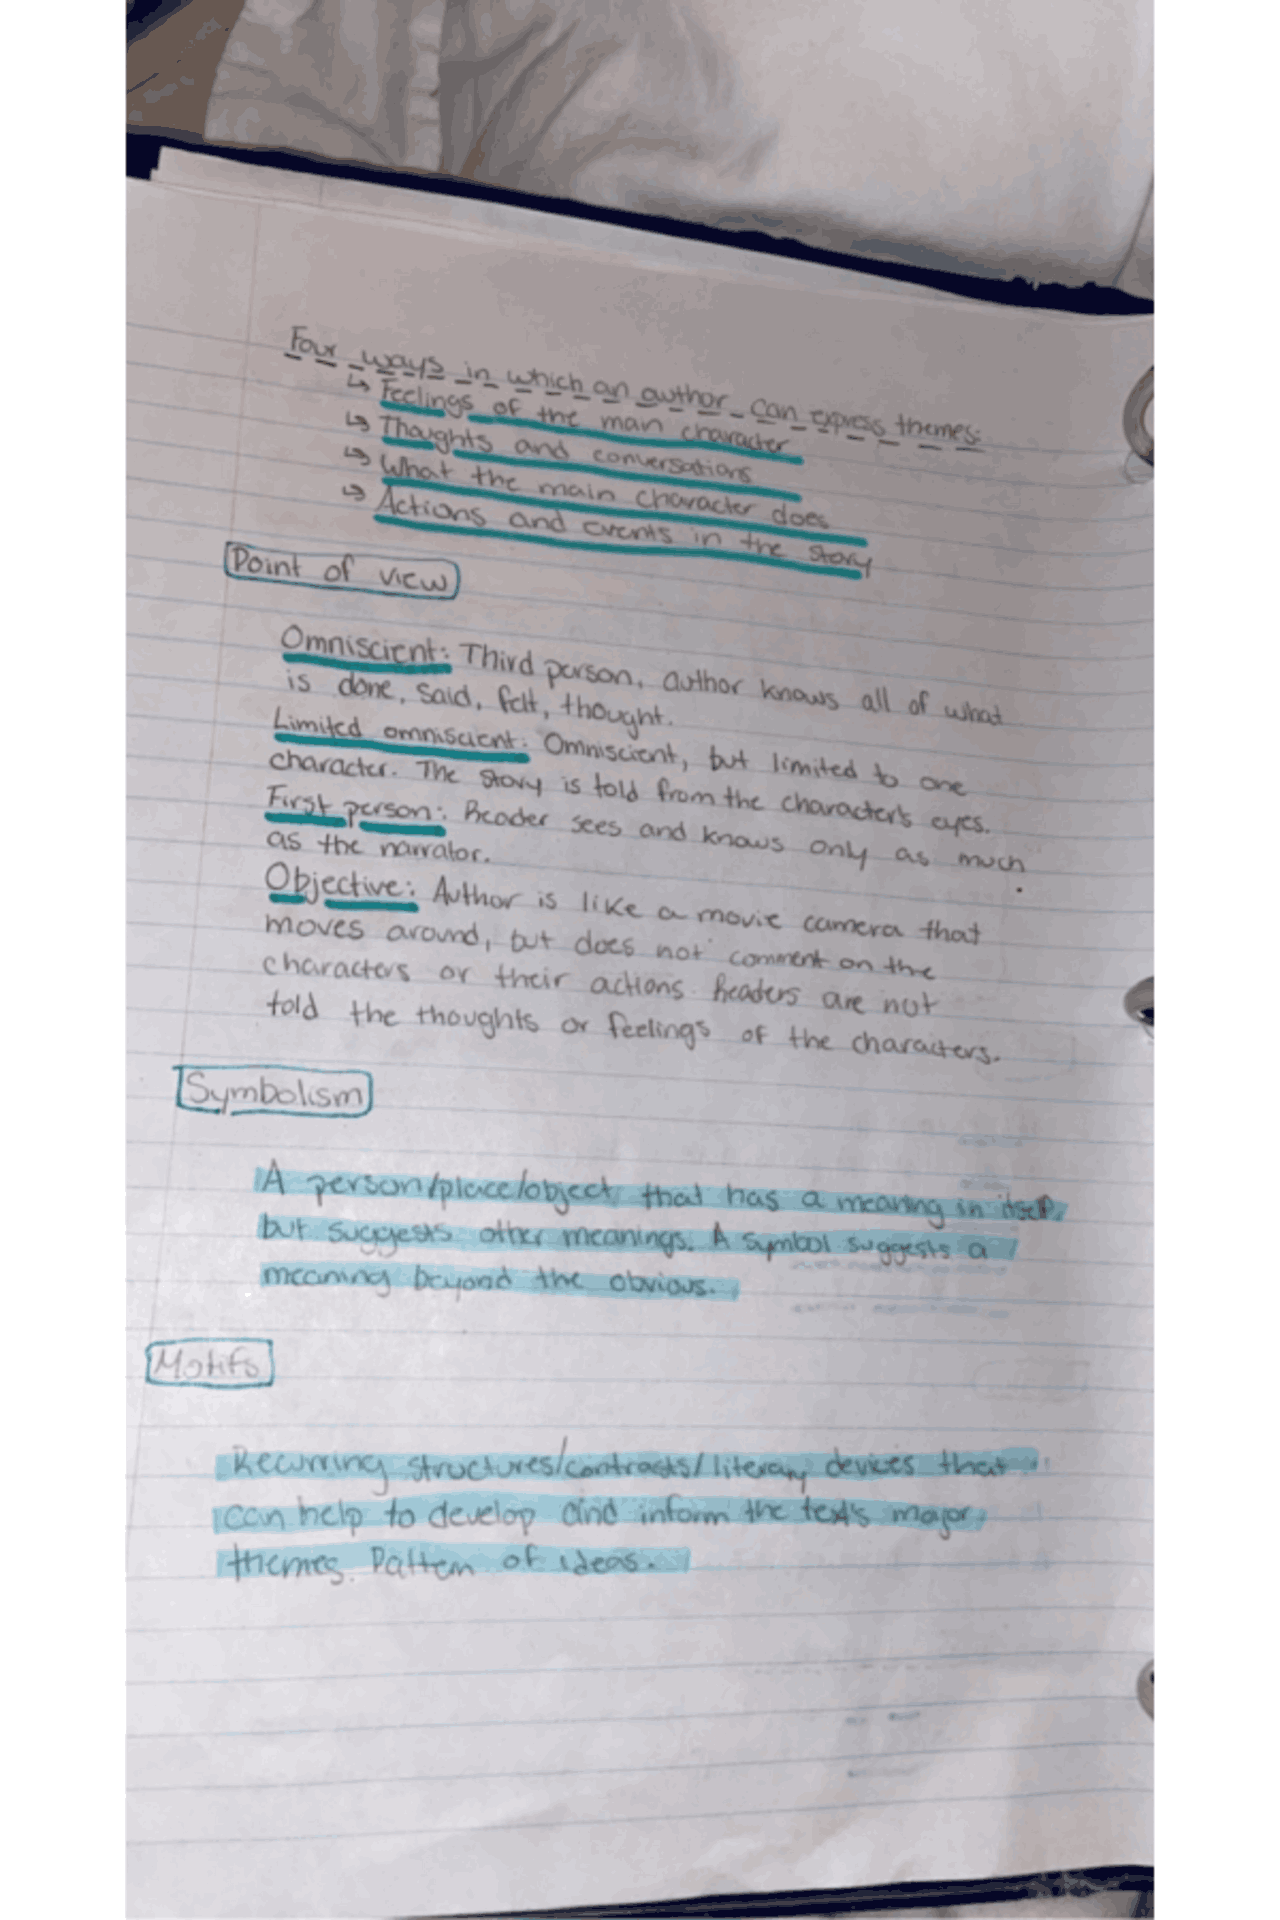 Four ways in which an author can express themes:
↳ Feelings of the main character
↳ Thoughts and conversations
↳ What the main character does
↳ Actions and events in the story
Point of view
Omniscient: Third person, author knows all of what
is done, said, felt, thought.
Limited omniscient: Omniscient, but limited to one
character. The story is told from the character's eyes.
First person: Reader sees and knows only as much
as the narrator.
Objective: Author is like a movie camera that
moves around, but does not comment on the
characters or their actions. Readers are not
told the thoughts or feelings of the characters.
Symbolism
A person/place/object that has a meaning in itself,
but suggests other meanings. A symbol suggests a
meaning beyond the obvious.
Motifs
Recurring structures/contracts/literary devices that
can help to develop and inform the text's major
themes. Pattern of ideas.